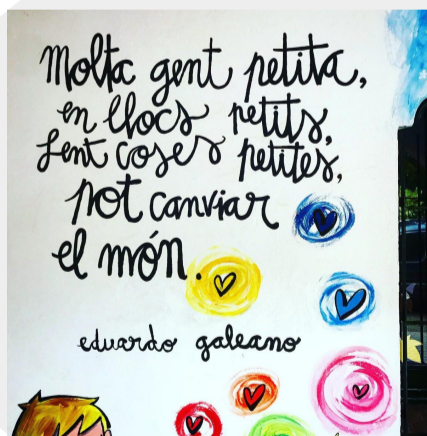 Molta gent petita,
en llocs petits,
fent coses petites,
pot canviar
el món.
eduardo galeano